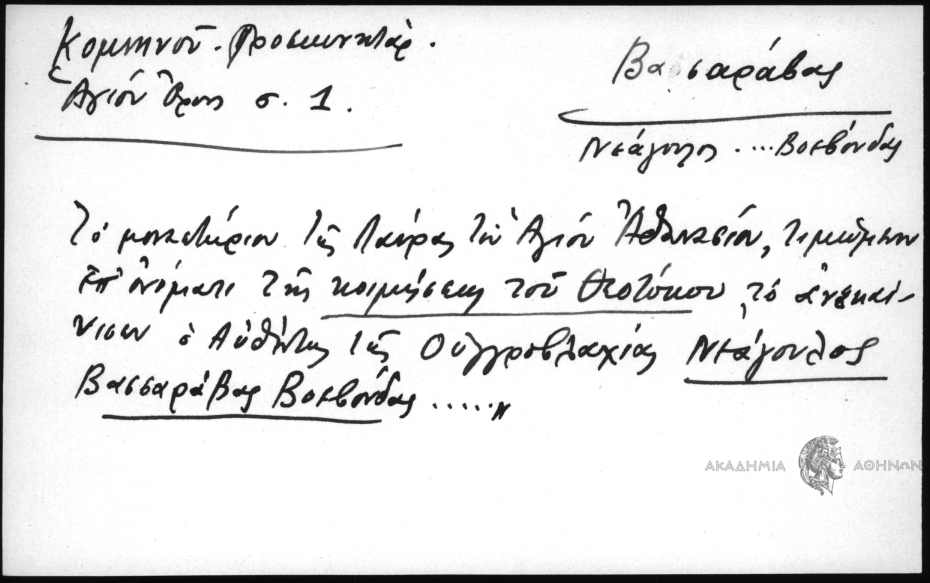 Κομνηνοῦ. Προσκυνητάρ.
Ἁγίου Ὄρους σ. 1.
Βασσαράβας
Νεάγουλος .... Βοεβόνδας
Τὸ μοναστήριον τῆς Λαύρας τοῦ Ἁγίου Ἀθανασίου, τιμώμενον
ἐπ' ὀνόματι τῆς κοιμήσεως τοῦ Θεοτόκου τὸ ἀνεκαί-
νισεν ὁ Αὐθέντης τῆς Οὐγγροβλαχίας Νεάγουλος
Βασσαράβας Βοεβόνδας ......"
ΑΚΑΔΗΜΙΑ ΑΘΗΝΩΝ